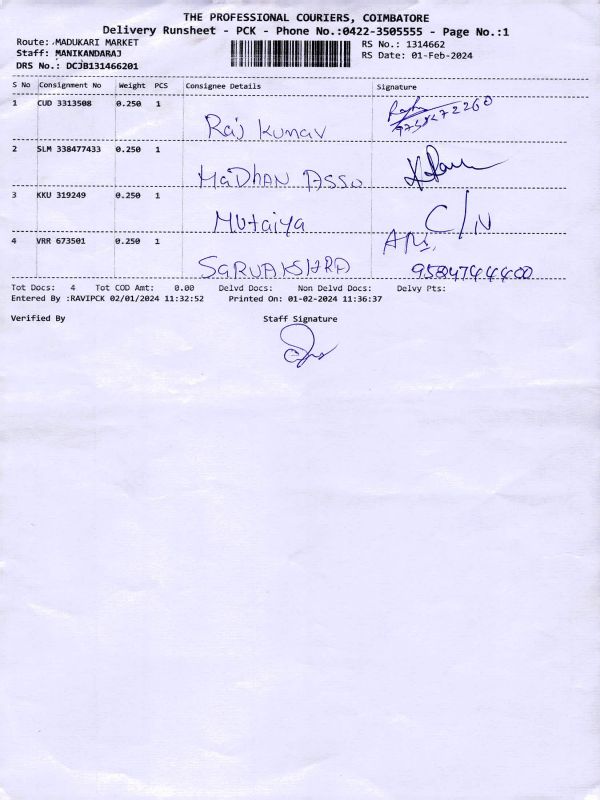 THE PROFESSIONAL COURIERS, COIMBATORE
Delivery Runsheet - PCK - Phone No.:0422-3505555 - Page No.:1
Route: MADUKARI MARKET
RS No.: 1314662
Staff: MANIKANDARAJ
RS Date: 01-Feb-2024
DRS No.: DCJB131466201
S No Consignment No Weight PCS Consignee Details Signature
1 CUD 3313508 0.250 1 Raj Kumar
2 SLM 338477433 0.250 1 MaDHAN ASSO
3 KKU 319249 0.250 1 Mutaiya C/N
4 VRR 673501 0.250 1 SARVAKSHRA 9584744400
Tot Docs: 4 Tot COD Amt: 0.00 Delvd Docs: Non Delvd Docs: Delvy Pts:
Entered By :RAVIPCK 02/01/2024 11:32:52 Printed On: 01-02-2024 11:36:37
Verified By Staff Signature